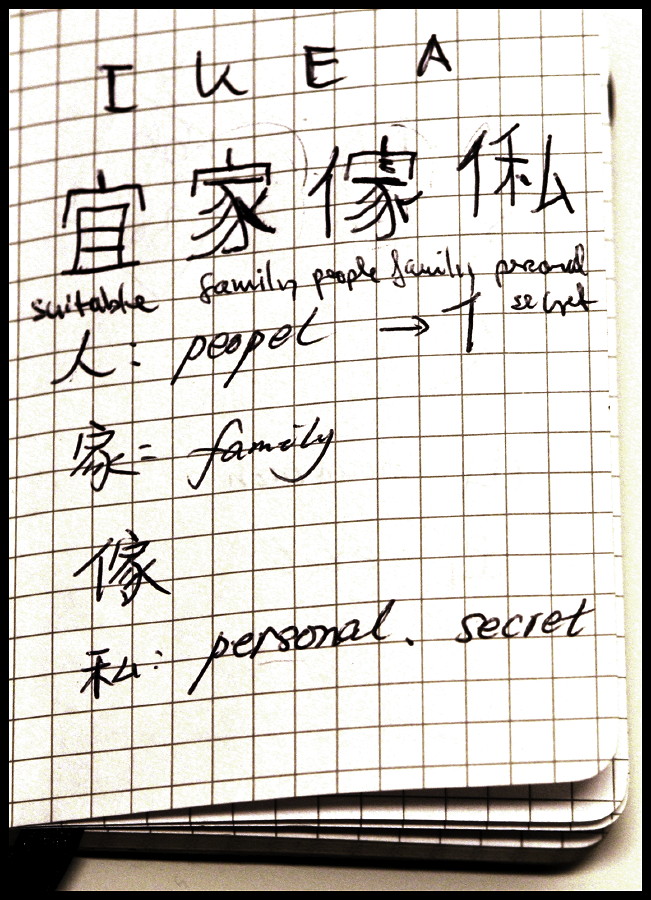 I K E A
宜 家 傢 俬
suitable family people family personal
secret
人: peopel → 亻
家= family
傢
私: personal. secret